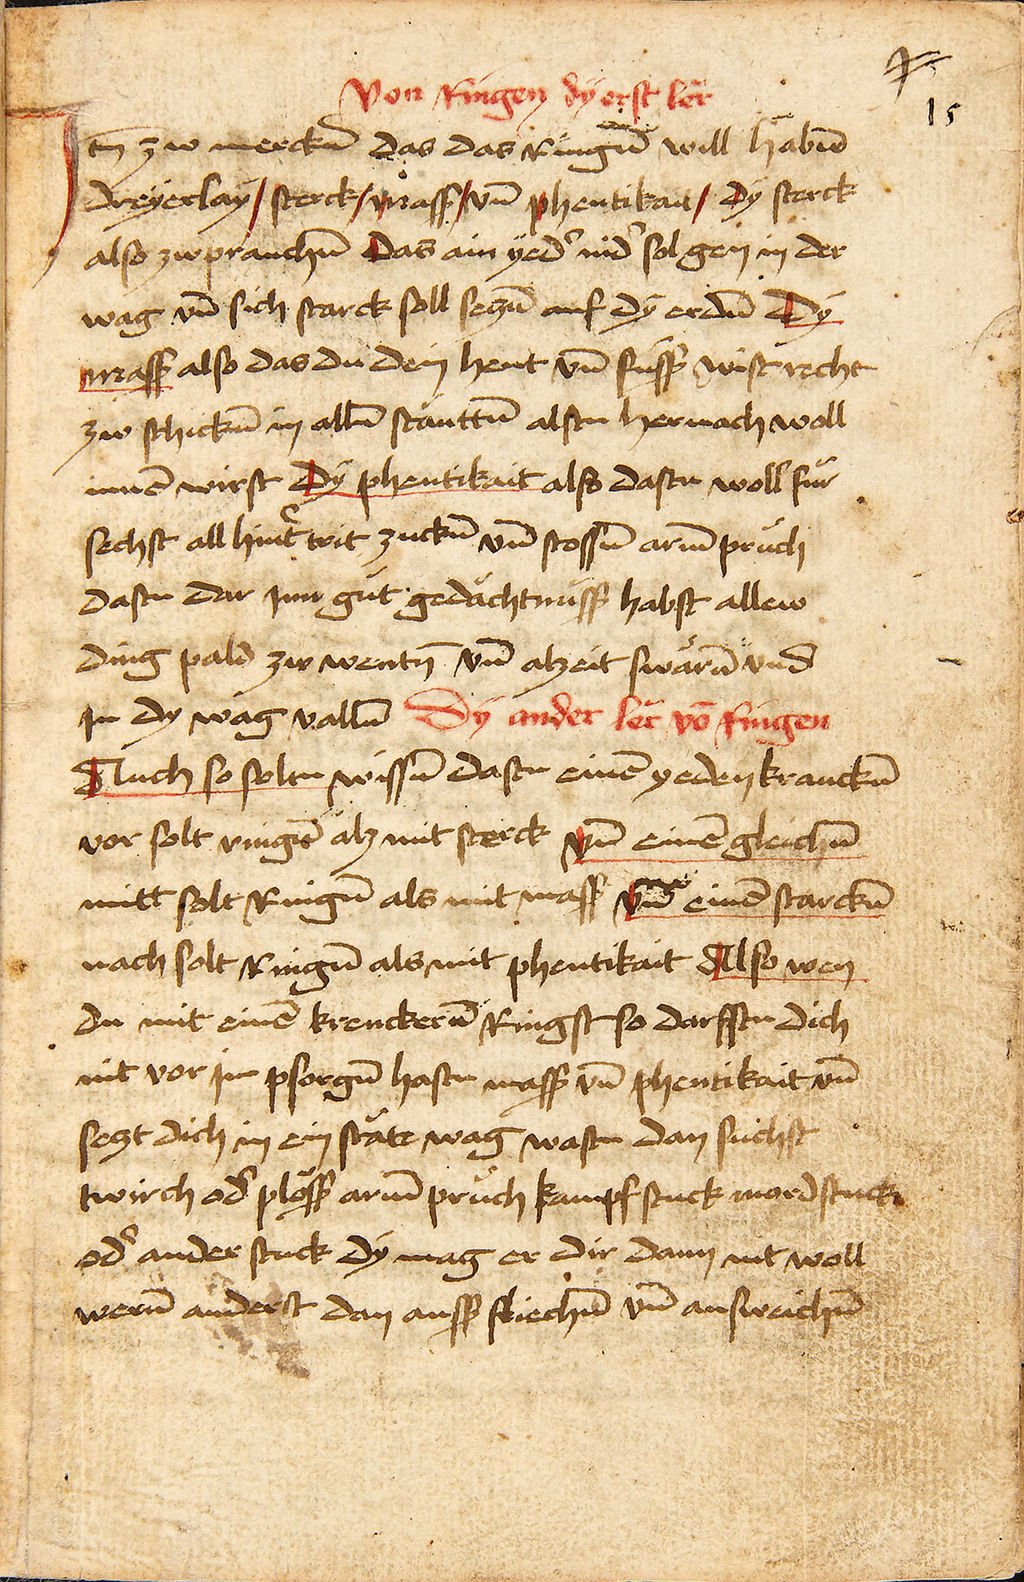 Von Ringen dÿ erst ler
15
Itm̄ zw merckn̄ das das Ringn̄ will habn̄
dreÿerlaÿ / sterck / mass / vn̄ phentikait / Dy sterck
also zw prauchn̄ Das ain yedr nidr sol gen in der
wag vn̄ sich starck soll seczn̄ auf dÿ erdn̄ Dÿ
mass also das du dein hent vn̄ fuss wist recht
zw schickn̄ in alln̄ stanttn̄ alstu hernach woll
innen̄ wirst Dÿ phentikait also dastu woll für
sechst all hintr trit zuckn̄ vn̄ stossn̄ arm̄ prüch
dastu dar Inn gut gedächtnüss habst allew
ding pald zw wentn̄ vn̄ alzeit swärn̄ vnd
In dy wag valln̄ Dÿ ander ler vō Ringen
Auch so soltu wissn̄ dastu einen̄ yeden kranckn̄
vor solt ringn̄ alz mit sterck vn̄ einen̄ gleichn̄
mitt solt Ringn̄ als mit mass vn̄ einen̄ starckn̄
nach solt Ringn̄ als mit phentikait Also wen
du mit einen̄ krenckern̄ Ringst so darfstu dich
nit vor im psorgn̄ hastu mass vn̄ phentikait vn̄
seczt dich in ein stäte wag wastu dan suchst
twirch odr plöss arm̄ prüch kampfstuck mordstuck
odr ander stuck dÿ mag er dir dann nit woll
wern̄ anderst dan auss fliechn̄ vn̄ ausweichn̄